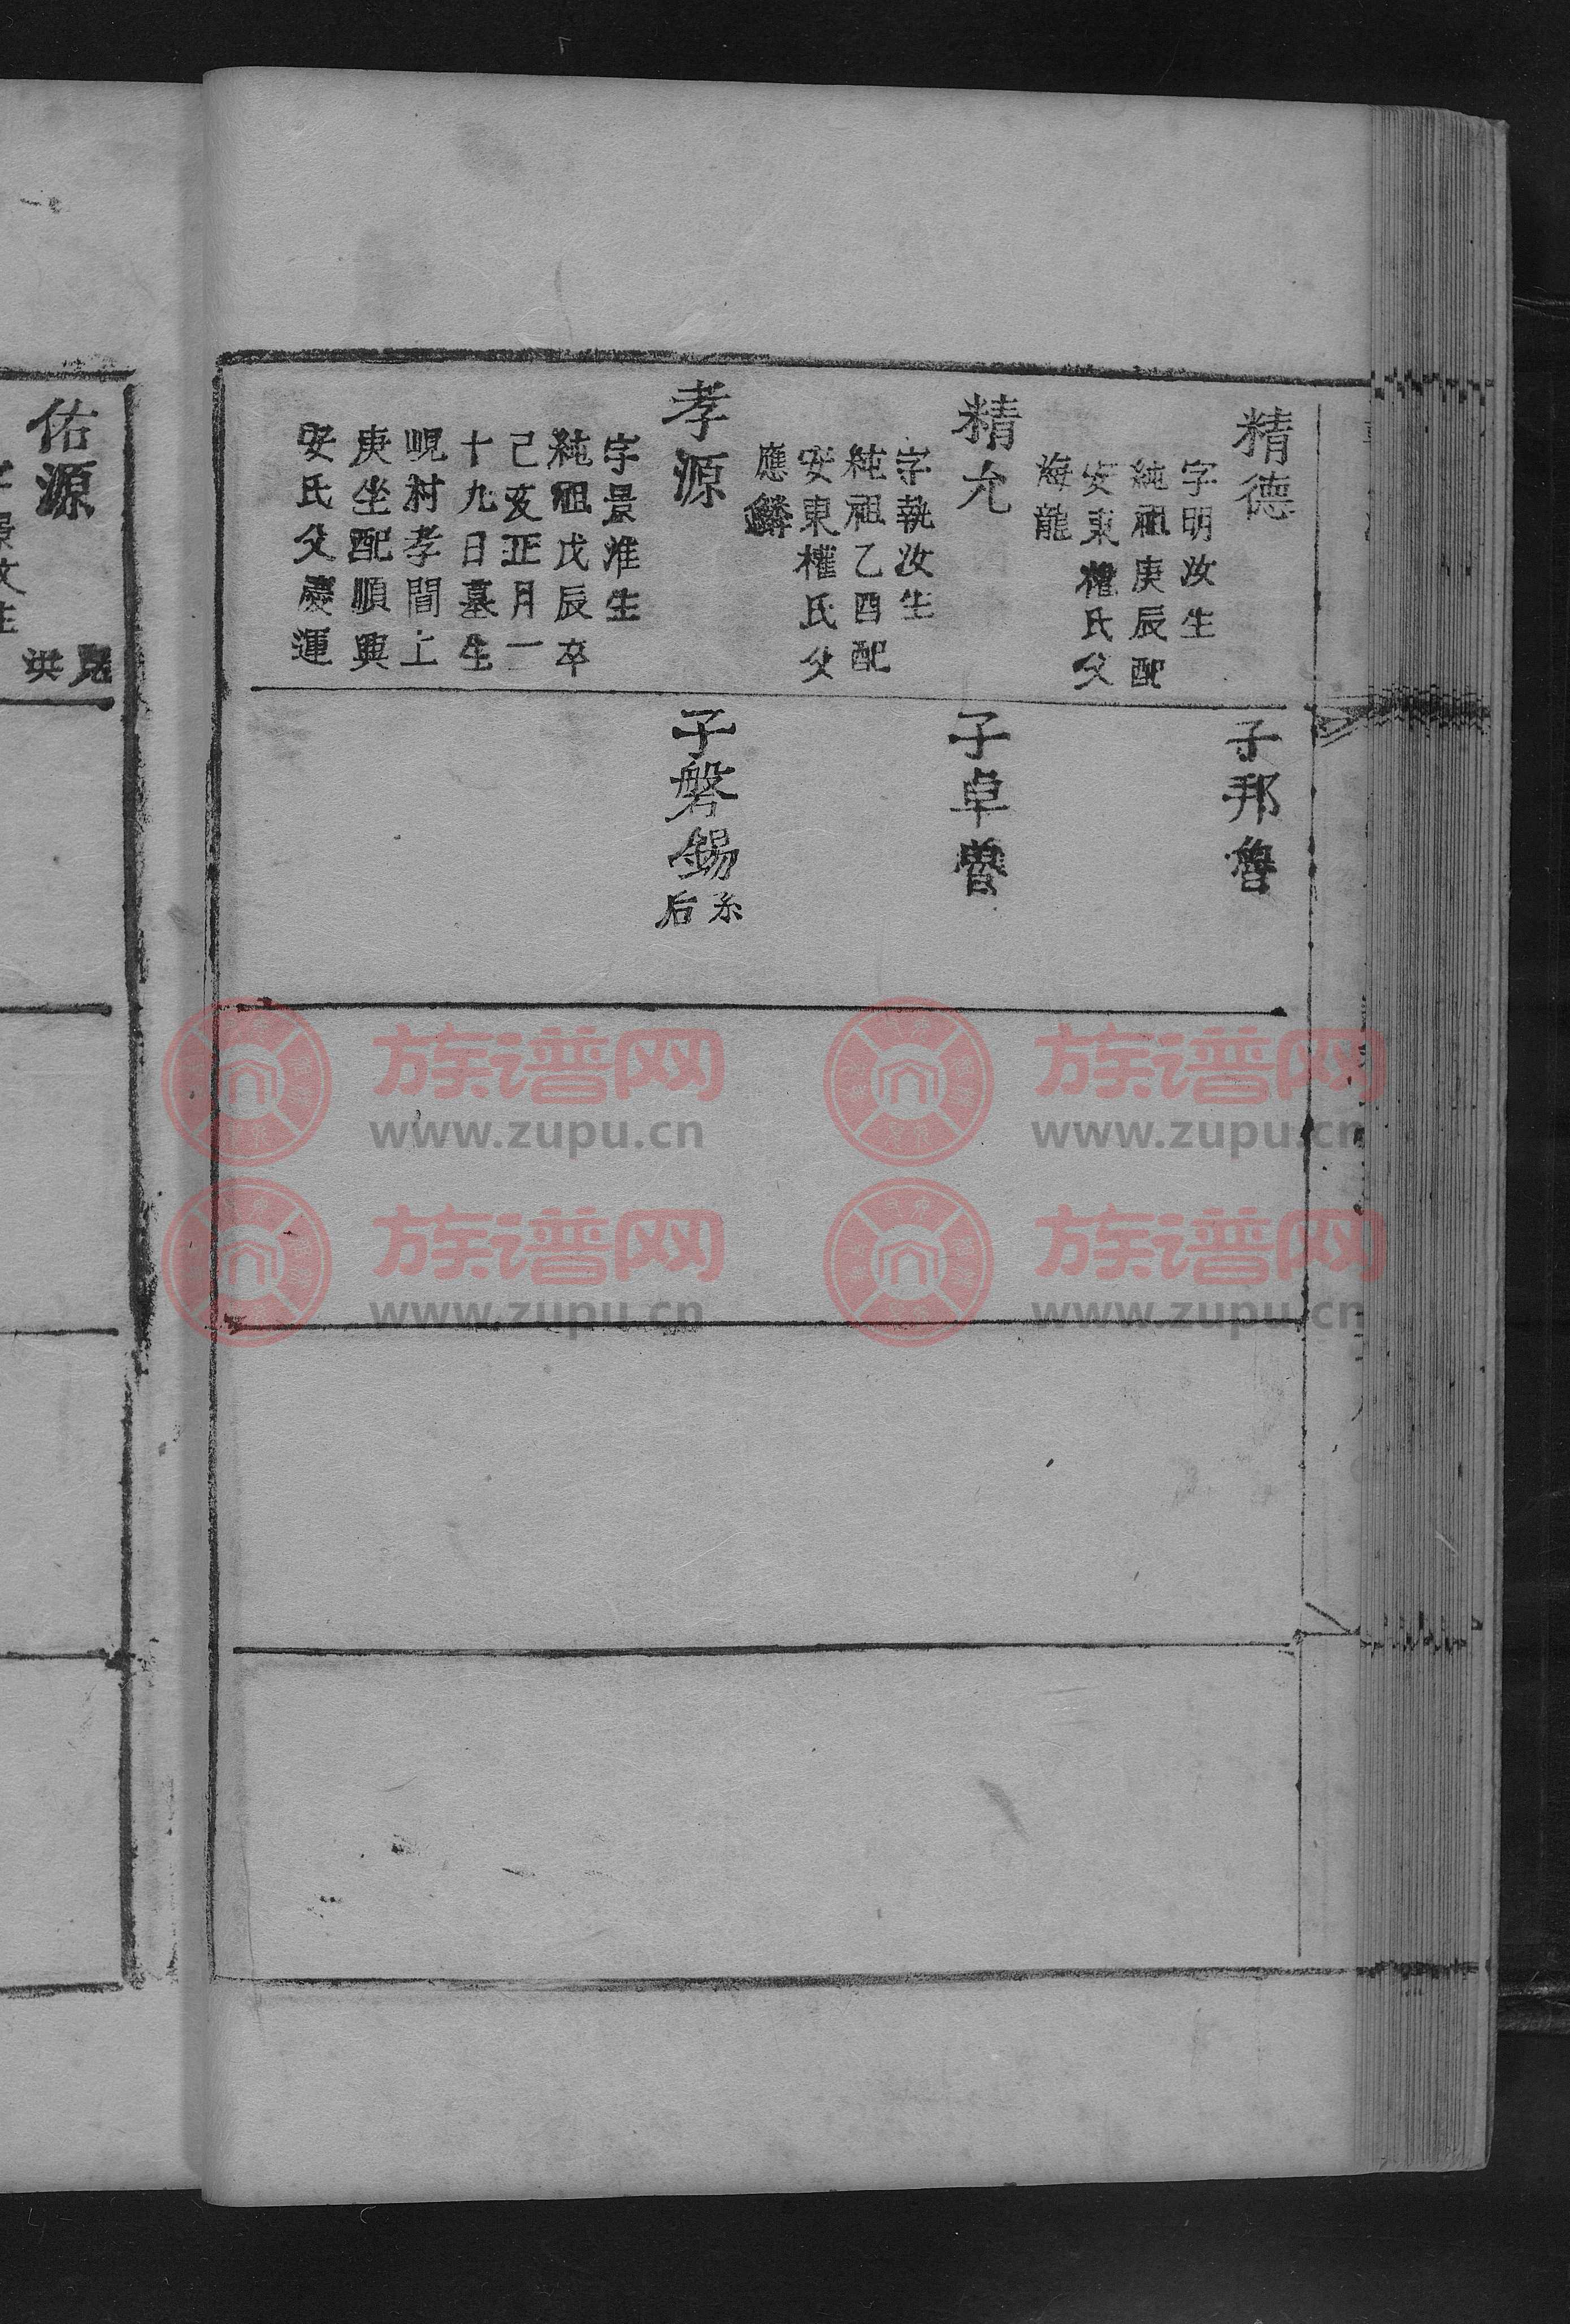 精德
字明汝生
純祖庚辰配
安東權氏父
海龍
子邦魯
精允
字執汝生
純祖乙酉配
安東權氏父
應鱗
子卓魯
孝源
字景淮生
純祖戊辰卒
己亥正月一
十九日墓生
峴村孝間上
庚坐配順興
安氏父慶運
子磐錫系后
佑源
族谱网
www.zupu.cn
族谱网
www.zupu.cn
族谱网
www.zupu.cn
族谱网
www.zupu.cn